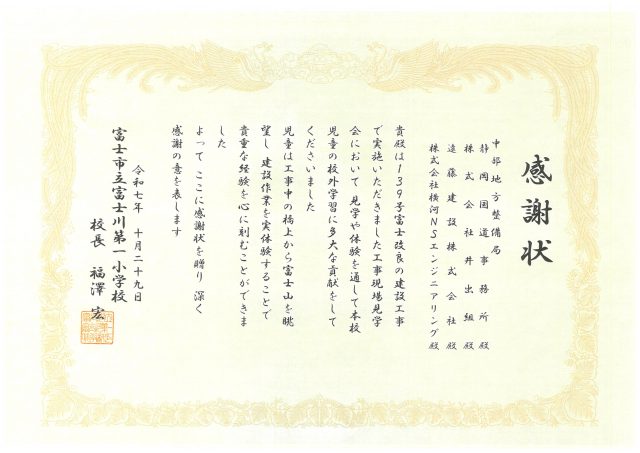 感謝状
中部地方整備局
静岡国道事務所 殿
株式会社井出組 殿
遠藤建設株式会社 殿
株式会社横河NSエンジニアリング 殿
貴殿は139号富士改良の建設工事
で実施いただきました工事現場見学
会において 見学や体験を通して本校
児童の校外学習に多大な貢献をして
くださいました
児童は工事中の橋上から富士山を眺
望し 建設作業を実体験することで
貴重な経験を心に刻むことができま
した
よって ここに感謝状を贈り 深く
感謝の意を表します
令和七年 十月二十九日
富士市立富士川第一小学校
校長 福澤 宏